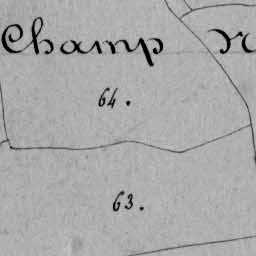 Champ N
64.
63.